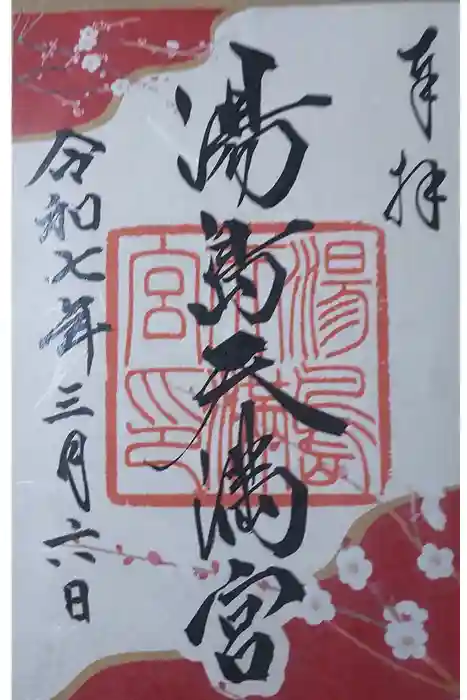 奉拝
湯島天満宮
令和七年三月六日
湯島天満宮印